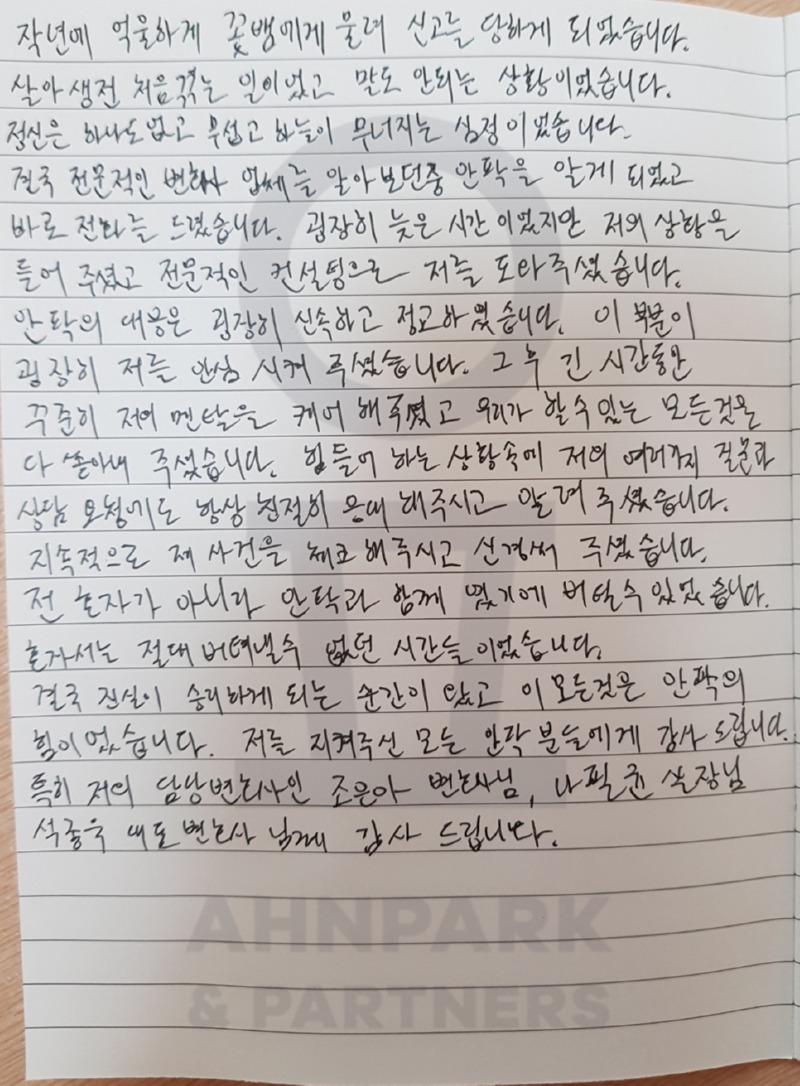 작년에 억울하게 꽃뱀에게 물려 신고를 당하게 되었습니다.
살아생전 처음겪는 일이었고 말도 안되는 상황이었습니다.
정신은 하나도없고 무섭고 하늘이 무너지는 심정이었습니다.
결국 전문적인 변호사 업체를 알아보던중 안팍을 알게 되었고
바로 전화를 드렸습니다. 굉장히 늦은 시간이었지만 저의 상황을
들어 주셨고 전문적인 컨설팅으로 저를 도와주셨습니다.
안팍의 대응은 굉장히 신속하고 정교하였습니다. 이 부분이
굉장히 저를 안심 시켜 주셨습니다. 그 후 긴 시간동안
꾸준히 저의 멘탈을 케어 해주셨고 우리가 할수있는 모든것을
다 쏟아내 주셨습니다. 힘들어 하는 상황속에 저의 여러가지 질문과
상담 요청에도 항상 친절히 응대 해주시고 알려 주셨습니다.
지속적으로 제 사건을 체크 해주시고 신경써 주셨습니다.
전 혼자가 아니라 안팍과 함께 였기에 버틸수 있었습니다.
혼자서는 절대 버텨낼수 없던 시간들이었습니다.
결국 진실이 승리하게 되는 순간이 왔고 이 모든것은 안팍의
힘이었습니다. 저를 지켜주신 모든 안팍 분들에게 감사 드립니다.
특히 저의 담당변호사인 조은아 변호사님, 나필권 실장님
석종욱 대표변호사님께 감사 드립니다.
AHNPARK
& PARTNERS